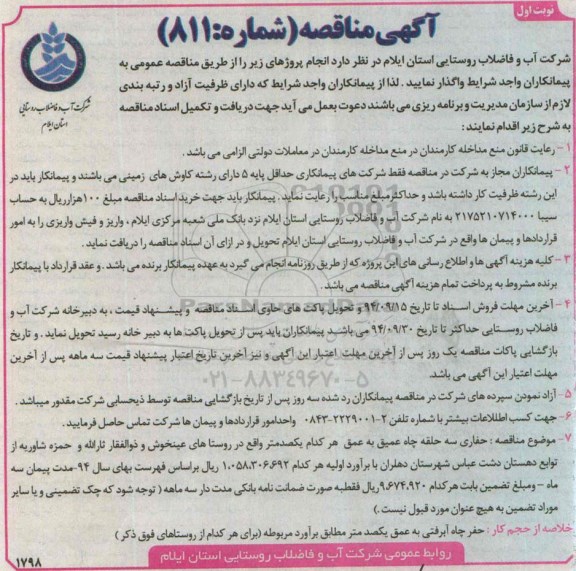 نوبت اول
آگهی مناقصه (شماره: ۸۱۱)
شرکت آب و فاضلاب روستایی
استان ایلام
شرکت آب و فاضلاب روستایی استان ایلام در نظر دارد انجام پروژهای زیر را از طریق مناقصه عمومی به
پیمانکاران واجد شرایط واگذار نمایید . لذا از پیمانکاران واجد شرایط که دارای ظرفیت آزاد و رتبه بندی
لازم از سازمان مدیریت و برنامه ریزی می باشند دعوت بعمل می آید جهت دریافت و تکمیل اسناد مناقصه
به شرح زیر اقدام نمایند:
۱ – رعایت قانون منع مداخله کارمندان در منع مداخله کارمندان در معاملات دولتی الزامی می باشد .
۲ – پیمانکاران مجاز به شرکت در مناقصه فقط شرکت های پیمانکاری حداقل پایه ۵ دارای رشته کاوش های زمینی می باشند و پیمانکار باید در
این رشته ظرفیت کار داشته باشد و حداکثر مبلغ مناسب را رعایت نماید . پیمانکار باید جهت خرید اسناد مناقصه مبلغ ۱۰۰هزارریال به حساب
سیبا ۲۱۷۵۲۱۰۷۱۴۰۰۰ به نام شرکت آب و فاضلاب روستایی استان ایلام نزد بانک ملی شعبه مرکزی ایلام ، واریز و فیش واریزی را به امور
قراردادها و پیمان ها واقع در شرکت آب و فاضلاب روستایی استان ایلام تحویل و در ازای آن اسناد مناقصه را دریافت نماید.
۳ – کلیه هزینه آگهی ها و اطلاع رسانی های این پروژه که از طریق روزنامه انجام می گیرد به عهده پیمانکار برنده می باشد . و عقد قرارداد با پیمانکار
برنده مشروط به پرداخت تمام هزینه آگهی مناقصه می باشد.
۴ – آخرین مهلت فروش اسناد تا تاریخ ۹۴/۰۹/۱۵ و تحویل پاکت های حاوی اسناد مناقصه و پیشنهاد قیمت ، به دبیرخانه شرکت آب و
فاضلاب روستایی حداکثر تا تاریخ ۹۴/۰۹/۳۰ می باشد پیمانکاران باید پس از تحویل پاکت ها به دبیر خانه رسید تحویل نماید . و تاریخ
بازگشایی پاکات مناقصه یک روز پس از آخرین مهلت اعتبار این آگهی و نیز آخرین تاریخ اعتبار پیشنهاد قیمت سه ماهه پس از آخرین
مهلت اعتبار این آگهی می باشد.
۵ – آزاد نمودن سپرده های شرکت در مناقصه پیمانکاران رد شده سه روز پس از تاریخ بازگشایی مناقصه توسط ذیحسابی شرکت مقدور میباشد .
۶ – جهت کسب اطلاعات بیشتر با شماره تلفن ۲-۲۲۲۹۰۰۱-۰۸۴۳ واحدامور قراردادها و پیمان ها شرکت تماس حاصل فرمایید.
۷ – موضوع مناقصه : حفاری سه حلقه چاه عمیق به عمق هر کدام یکصدمتر واقع در روستا های عینخوش و ذوالفقار ثارالله و حمزه شاوریه از
توابع دهستان دشت عباس شهرستان دهلران با برآورد اولیه هر کدام ۱،۰۵۸،۳۰۶،۶۹۲ ریال براساس فهرست بهای سال ۹۴- مدت پیمان سه
ماه – ومبلغ تضمین بابت هر کدام ۹،۶۷۴،۹۲۰ ریال فقطبه صورت ضمانت نامه بانکی مدت دار سه ماهه ( توجه شود که چک تضمینی و یا سایر
موراد تضمین به هیچ عنوان مورد قبول نیست.)
خلاصه از حجم کار : حفر چاه آبرفتی به عمق یکصد متر مطابق برآورد مربوطه (برای هر کدام از روستاهای فوق ذکر )
روابط عمومی شرکت آب و فاضلاب روستایی استان ایلام
۱۷۹۸
ParsNamadData
۰۲۱-۸۸۳۴۹۶۷۰-۵